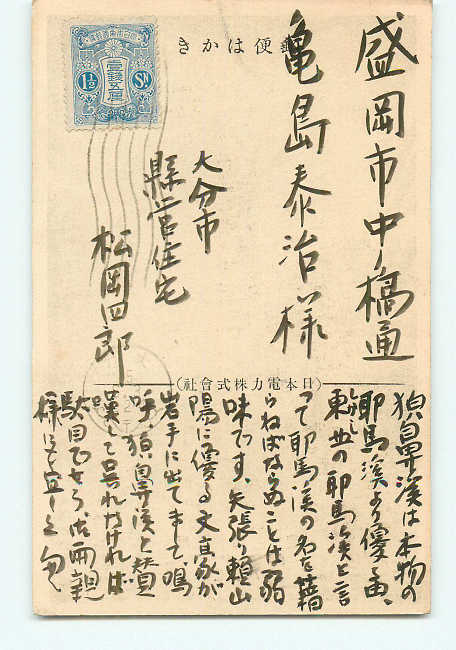 郵便はかき
盛岡市中ノ橋通
亀島泰治様
大分市
縣営住宅
松岡四郎
(日本電力株式會社)
猊鼻渓は本物の
耶馬渓より優る由、
東北の耶馬渓と言
って耶馬渓の名を藉
らねばならぬことは弱
味です、矢張り頼山
陽に優る文豪が
岩手に出てまして、鳴
呼猊鼻渓と賛
嘆して呉れなければ
駄目でせう、御両親
様にも宜しく
1½ Sn